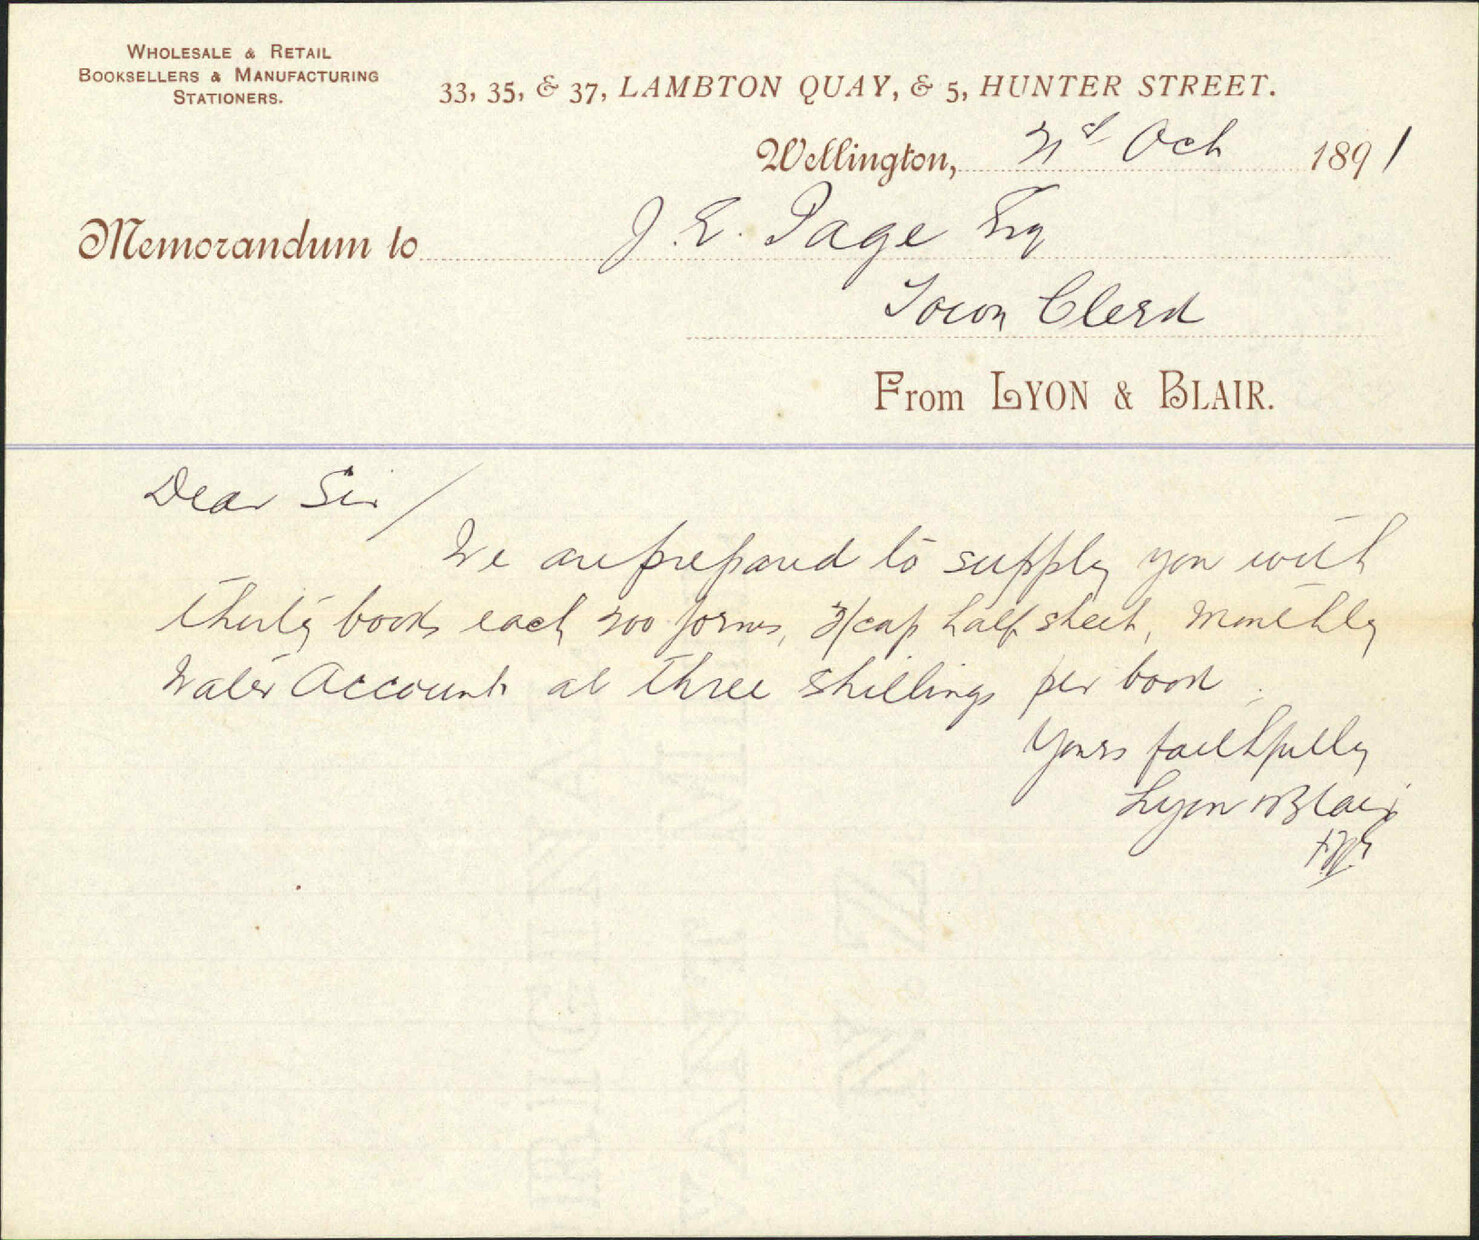 WHOLESALE & RETAIL
BOOKSELLERS & MANUFACTURING
STATIONERS.
33, 35, & 37, LAMBTON QUAY, & 5, HUNTER STREET.
Wellington, 21st Oct 1891
Memorandum to J. E. Page Esq
Town Clerk
From LYON & BLAIR.
Dear Sir/
We are prepared to supply you with
thirty books each 200 forms, f/cap half sheet, Monthly
Water Account at three shillings per book.
Yours faithfully
Lyon & Blair